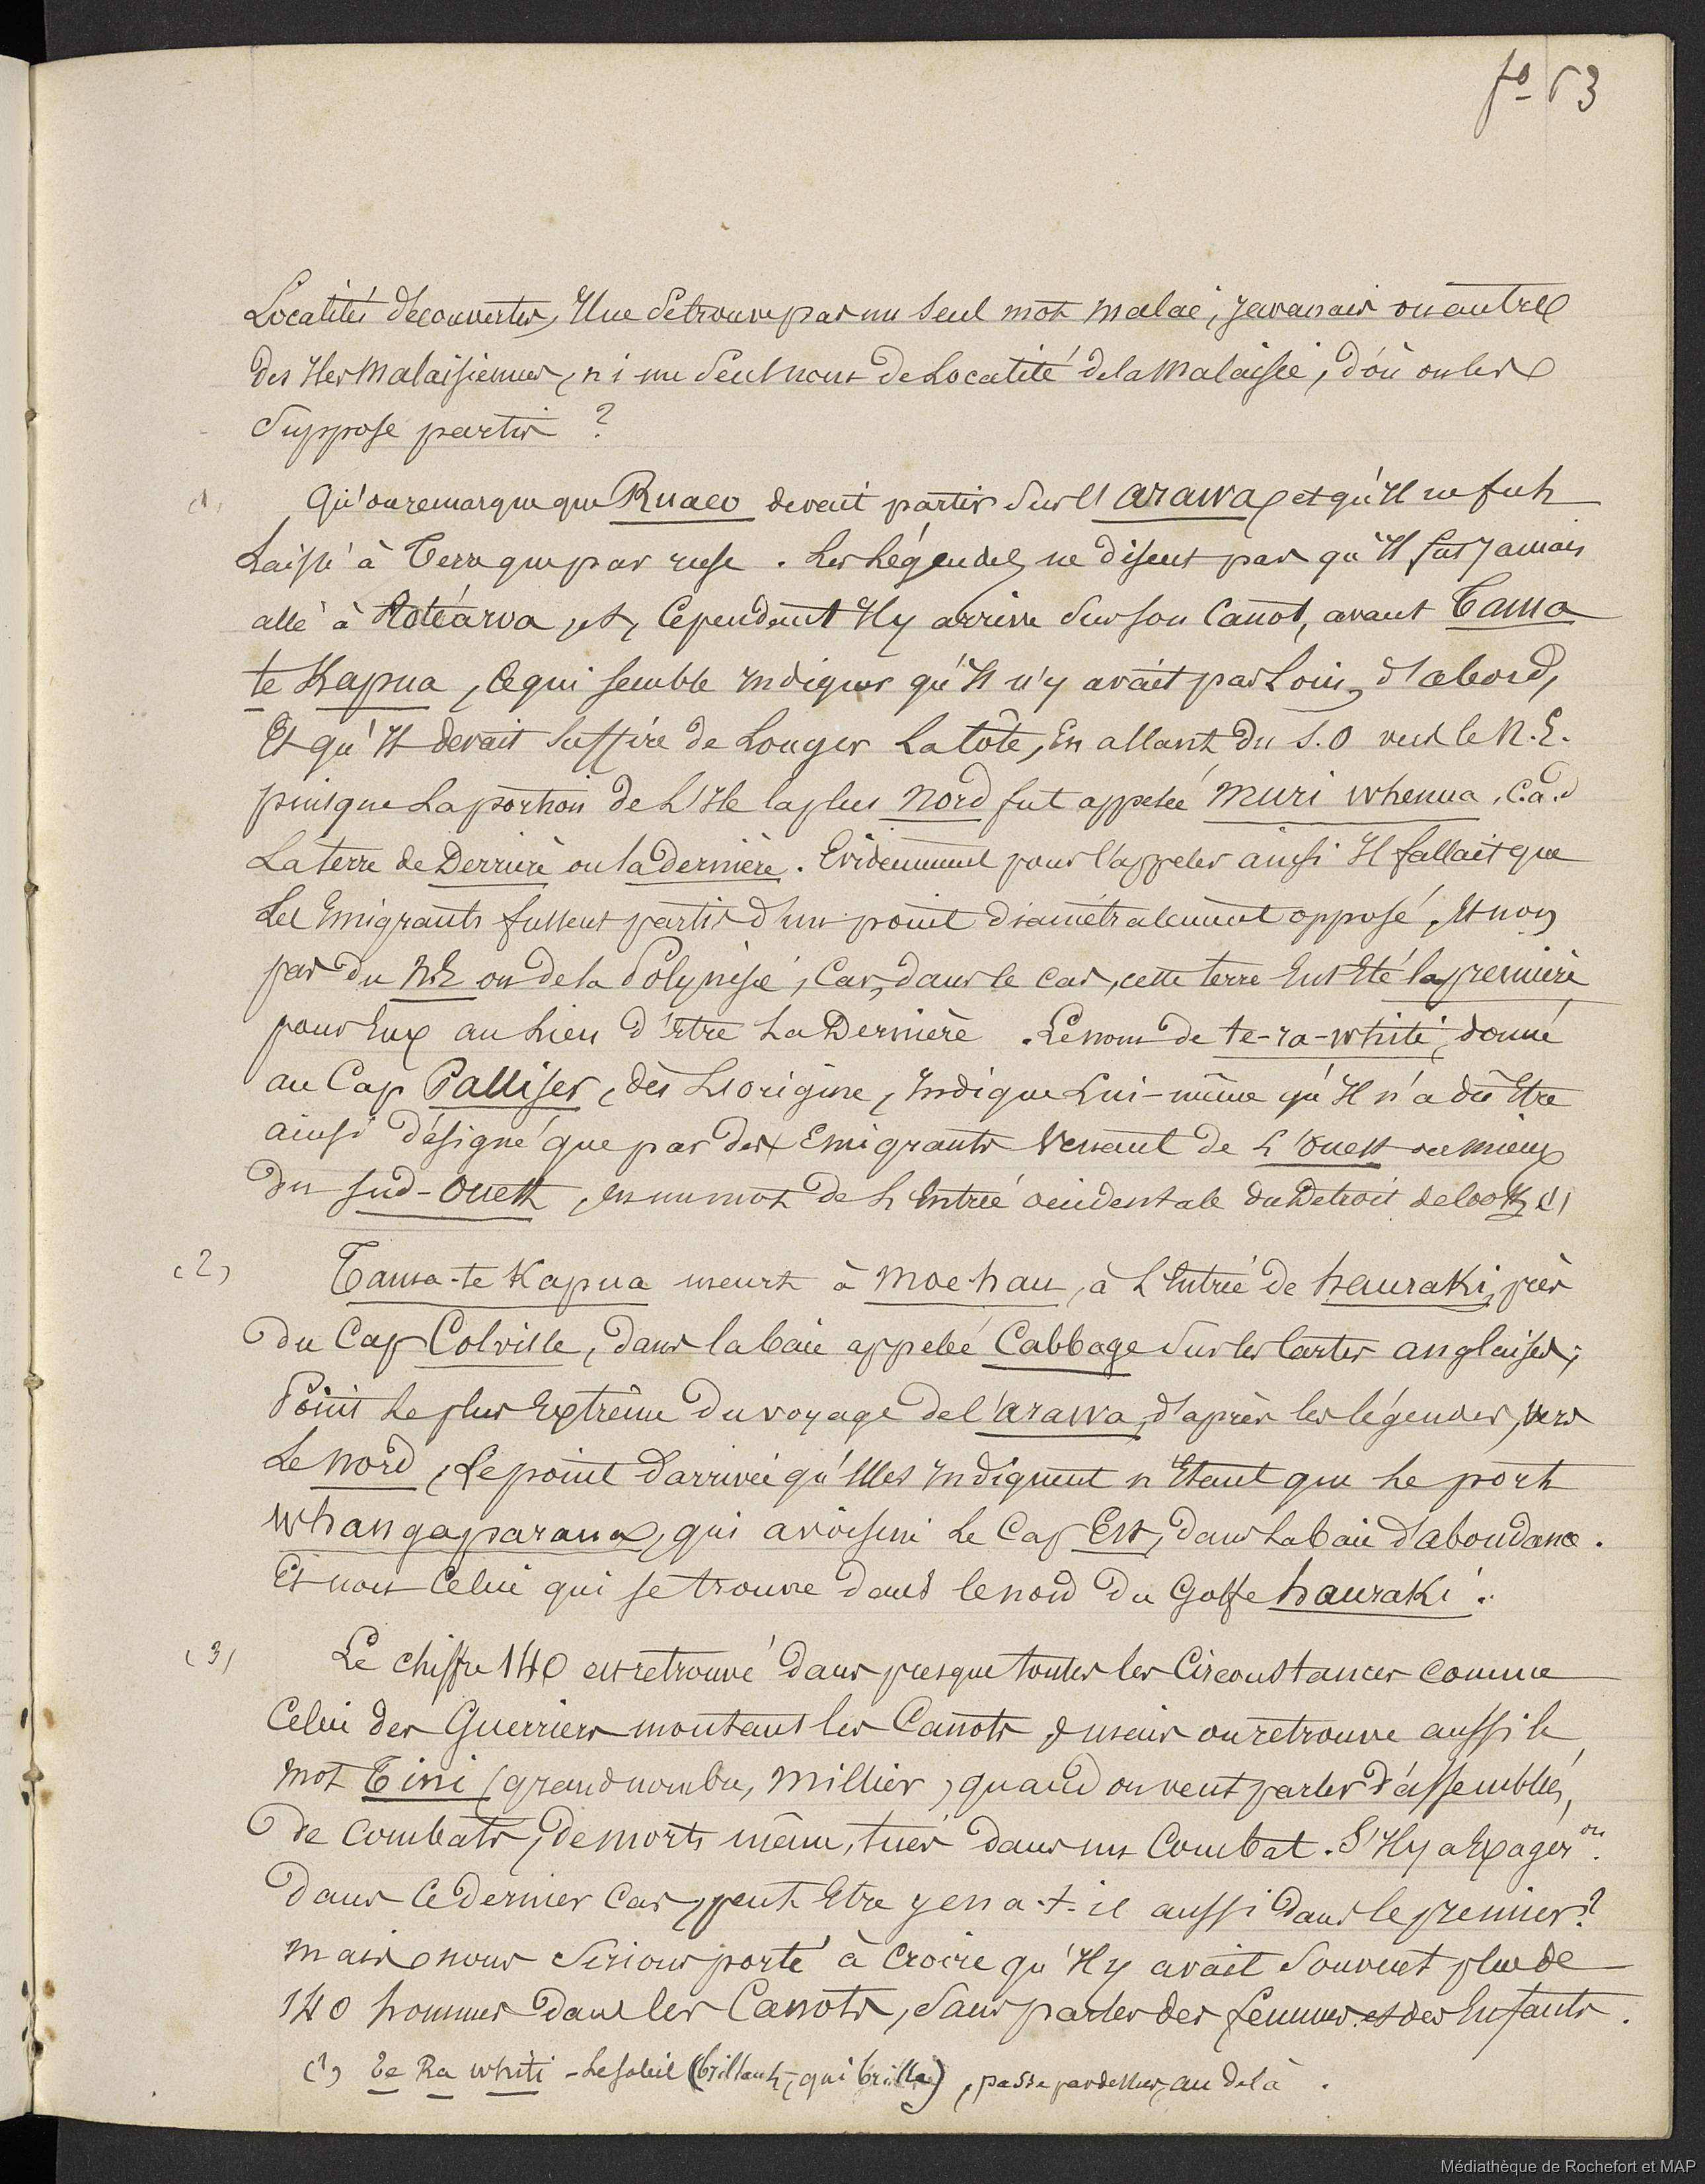 fo 63
Localités découvertes, Il ne se trouve pas un seul mot malai, javanais ou autre
des Iles Malaisiennes, ni un seul nom de Localité de la Malaisie, d'où on les
suppose partis ?
(1) Qu'on remarque que Ruaeo devait partir sur l'arawa, et qu'Il ne fut
Laissé à Terre que par ruse. Les Légendes ne disent pas qu'Il fut jamais
allé à Aotéaroa, et, Cependant Il y arrive sur son Canot, avant Tama
te Kapua, Ce qui semble Indiquer qu'Il n'y avait pas Loin, d'abord,
Et qu'Il devait suffire de Longer La Côte, En allant du S.O vers le N.E.
puisque La portion de L'Ile la plus Nord fut appelée Muri whenua, C.a.d
La terre de Derrière ou la dernière. Evidemment pour l'appeler ainsi Il fallait que
Les Emigrants fussent partis d'un point diamétralement opposé, Et non
pas du N.E ou de la Polynésie, Car, dans le cas, cette terre Eut Eté la première
pour Eux au Lieu d'Etre La Dernière. Le nom de te-ra-whiti, donné
au Cap Palliser, dès L'origine, Indique Lui-même qu'Il n'a dû Etre
ainsi désigné que par des Emigrants Venant de L'Ouest ou mieux
du Sud-Ouest, en un mot de L'Entrée occidentale du Détroit de Cook (1)
(2) Tama-te Kapua meurt à Moe hau, à L'Entrée de hauraki, près
du Cap Colville, dans la baie appelée Cabbage sur les Cartes anglaises;
Point Le plus Extrême du voyage de l'arawa, d'après les légendes, vers
Le Nord, Le point d'arrivée qu'Elles Indiquent n'Etant que Le port
whangaparaua, qui avoisine Le Cap Est, dans La baie d'abondance.
Et non Celui qui se trouve dans le nord du Golfe hauraki.
(3) Le chiffre 140 est retrouvé dans presque toutes les Circonstances comme
Celui des Guerriers montant les Canots & mais on retrouve aussi le
mot Tini (grand nombre, Millier) quand on veut parler d'assemblées,
de Combats, de morts même, tués dans un Combat. S'Il y a Exagér.on
dans Ce dernier Cas, peut Etre y en a-t-il aussi dans le premier?
Mais nous serions porté à Croire qu'Il y avait souvent plus de
140 hommes dans les Canots, sans parler des femmes et des Enfants.
(1) Te Ra whiti - Le soleil (brillant, qui brille), passe par dessus, au delà.
Médiathèque de Rochefort et MAP